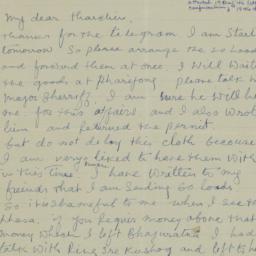 attached 19
confirmation of 19
My dear Tharchin.
thanks for the telegram I am Starting
tomorrow So please arrange the 50 Loads
and forward them at once. I Will Waite
the goods at Pharijong please talk to
Major Sherriff. I am sure he Will help
me for this affairs and I also Wrote
him and returned the permit.
but do not delay this cloth because
I am very liked to have them With
in this time I have Written to my
friends that I am Sending 50 Loads
So it is shameful to me when I see them
Lhasa. if you requir money above that
money Which I left Bhajuratna I had
talk With Ring Ire Kushog and left to him